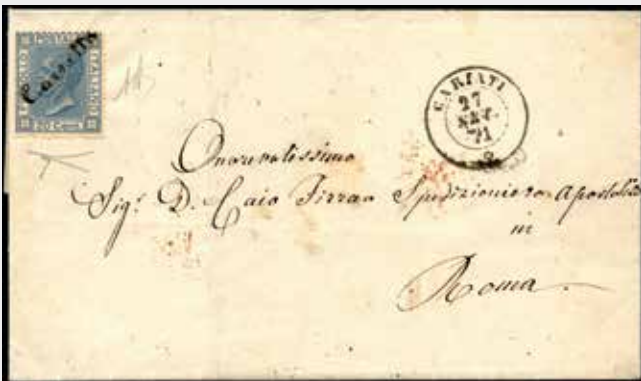 20 Cent
CARIATI
27
71
Onorevolissimo
Sigr. D. Caio Firrao Spedizioniere Apostolico
in
Roma